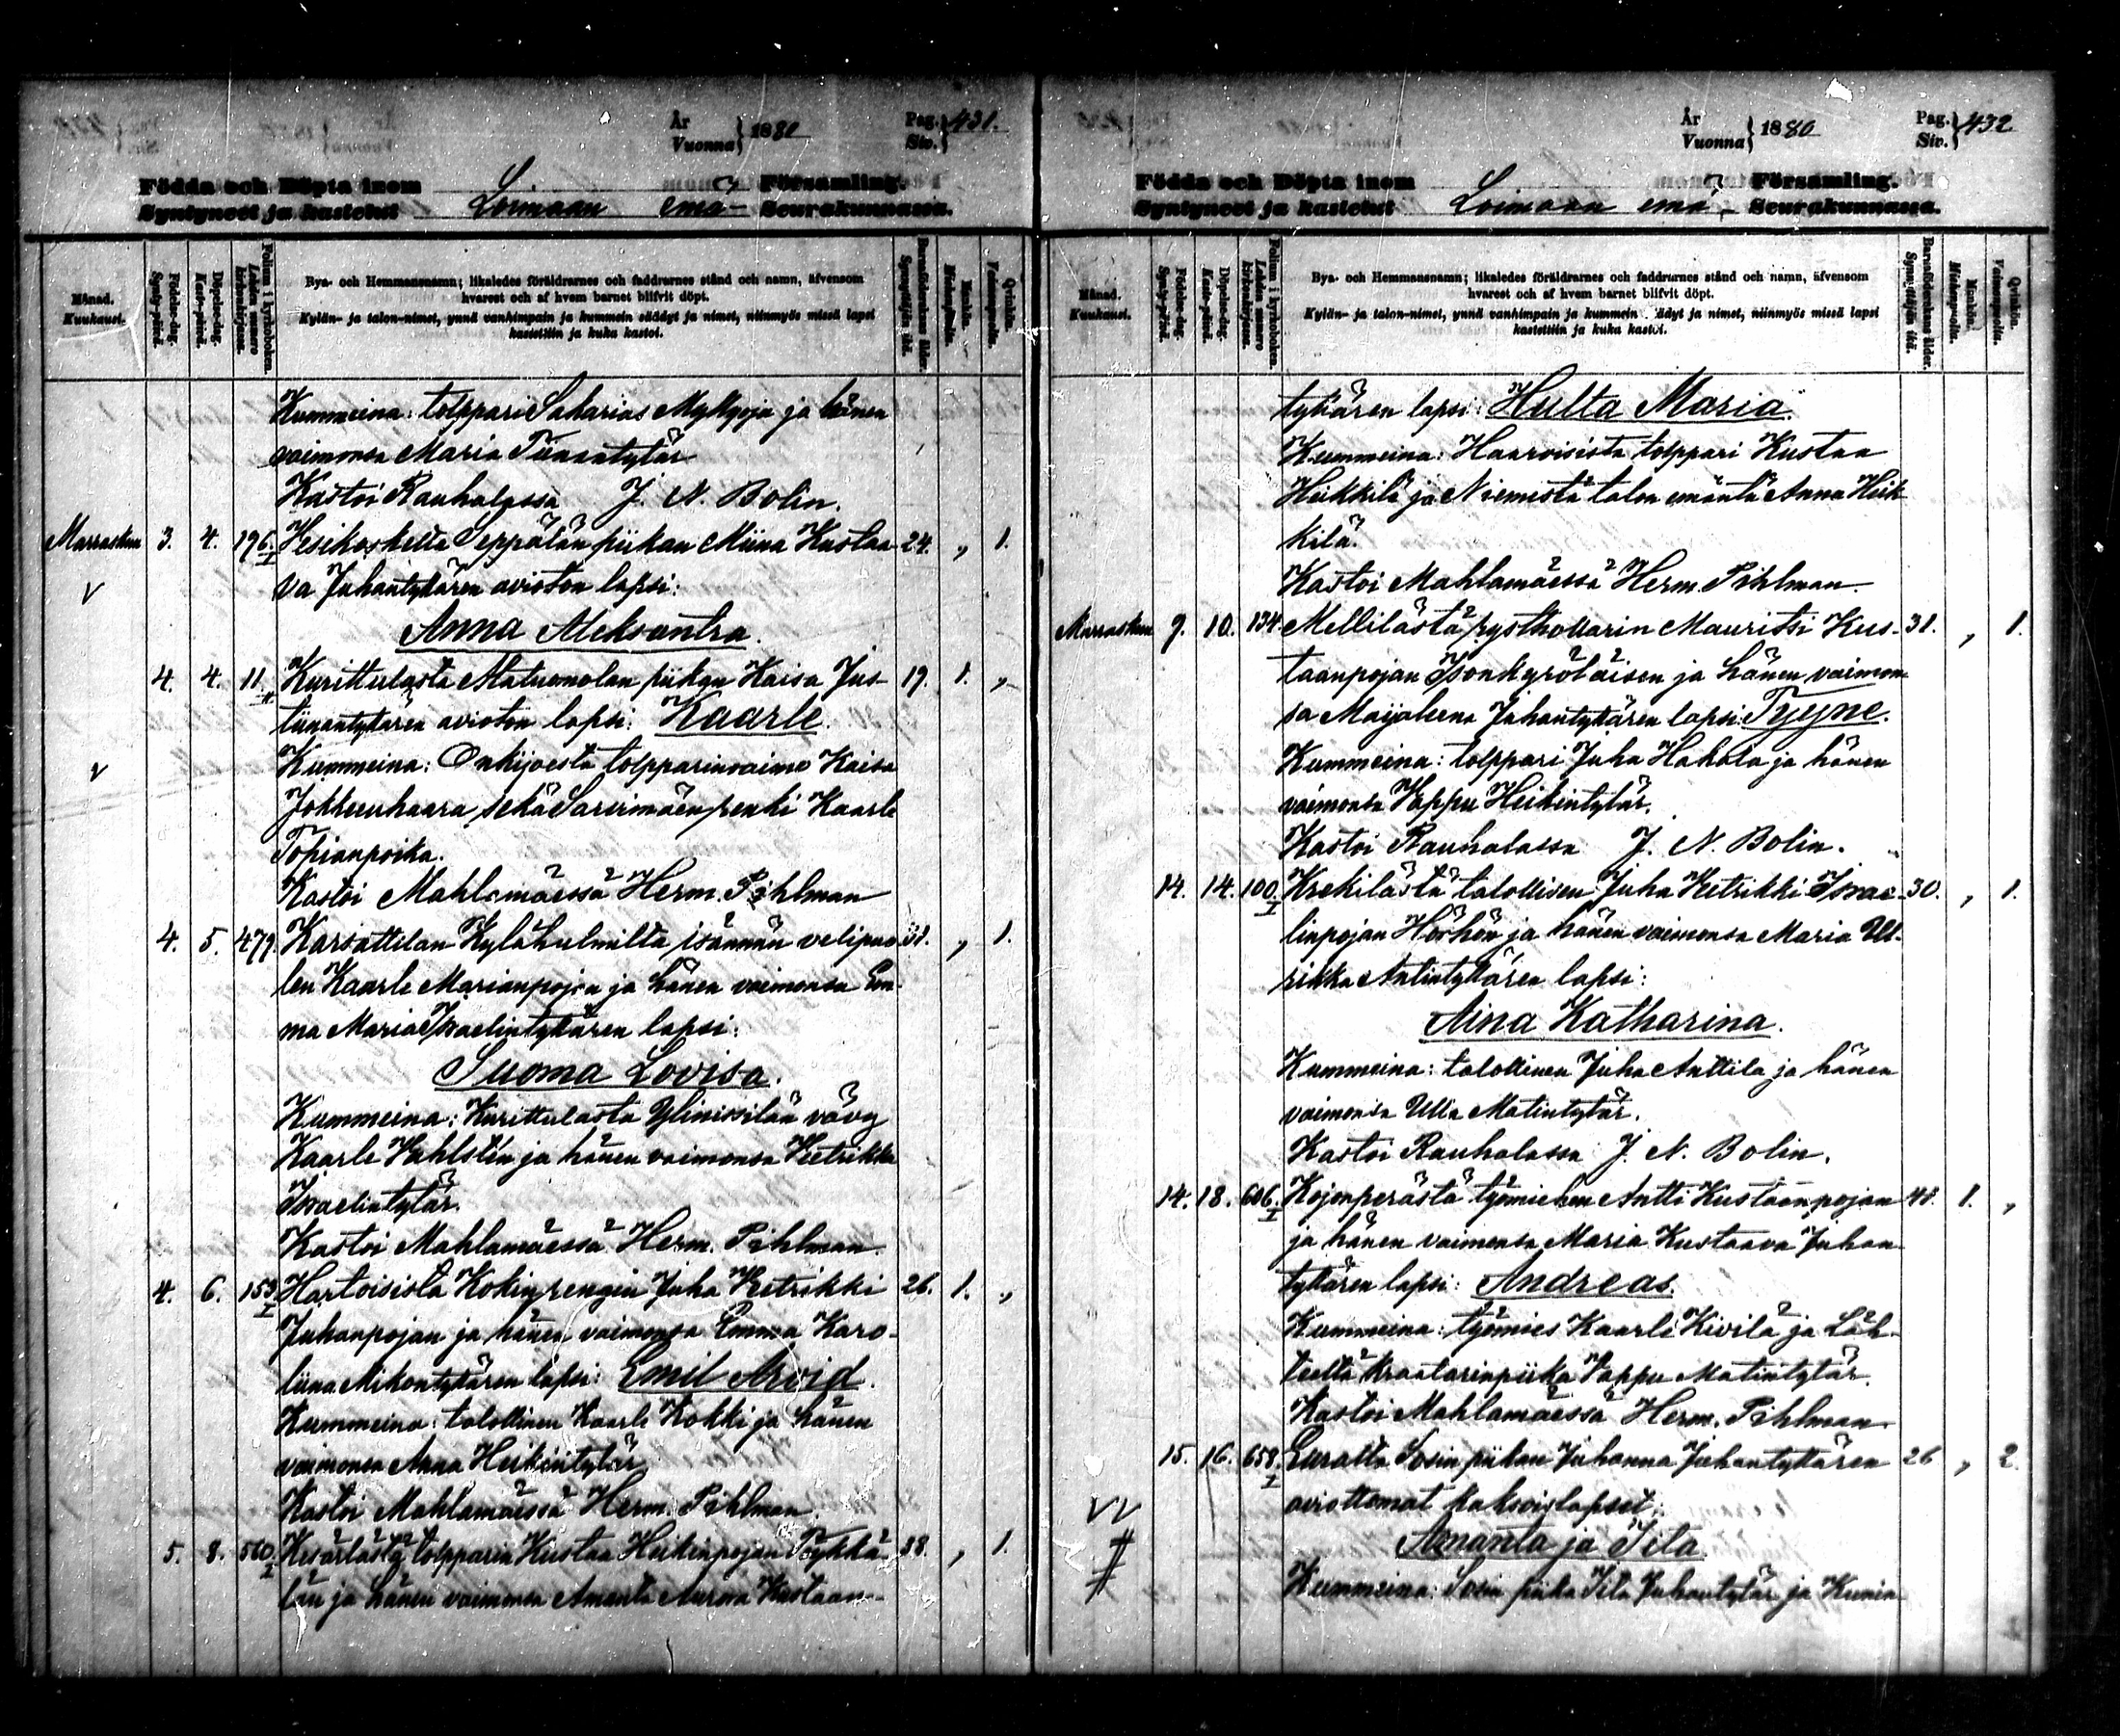 År
Vuonna } 1880
Pag.
Siv. } 431.
Födda och Döpta inom
Syntyneet ja kastetut
Loimaan emä-
Församling.
Seurakunnassa.
Månad.
Kuukausi.
Födelse-dag.
Synty-päivä.
Döpelse-dag.
Kaste-päivä.
Folium i kyrkoboken.
Lehden numero kirkonkirjassa.
Bya- och Hemmansnamn; likaledes föräldrarnes och faddrarnes stånd och namn, äfvensom
hvarest och af hvem barnet blifvit döpt.
Kylän- ja talon-nimet, ynnä vanhimpain ja kummein säädyt ja nimet, niinmyös missä lapsi
kastettiin ja kuka kastoi.
Barnaföderskans ålder.
Synnyttäjän ikä.
Mankön.
Miehenpuolia.
Qvinkön.
Vaimonpuolia.
Kummeina: tolppari Sakarias Myllyoja ja hänen
vaimonsa Maria Tiinantytär
Kastoi Rauhalassa J. N. Bolin.
Marraskuu 3. 4. 196. I Vesikoskelta Seppälän piikan Miina Kustaa- 24. „ 1.
va Juhantyttären avioton lapsi:
Anna Aleksantra.
4. 4. 11. Kurittulasta Alatuomolan piikan Kaisa Jus- 19. 1. „
tiinantyttären avioton lapsi: Kaarle.
Kummeina: Onkijoesta tolpparinvaimo Kaisa
Jokkeenhaara, sekä Sarvimäen penki Kaarle
Topianpoika.
Kastoi Mahlamäessä Herm. Pihlman
4. 5. 479. Karsattilan Kylähulmilta isännän velipuo- 31. „ 1.
len Kaarle Marianpojan ja hänen vaimonsa Em-
ma Maria Israelintyttären lapsi:
Suoma Lovisa.
Kummeina: Kurittulasta Ylinissilän vävy
Kaarle Vahlstén ja hänen vaimonsa Vetrikka
Israelintytär.
Kastoi Mahlamäessä Herm. Pihlman.
4. 6. 153. I Hartoisista Kokin rengin Juha Vetrikki 26. 1. „
Juhanpojan ja hänen vaimonsa Emma Karo-
liina Mikontyttären lapsi: Emil Arvid.
Kummeina: talollinen Kaarle Kokki ja hänen
vaimonsa Anna Heikintytär
Kastoi Mahlamäessä Herm. Pihlman.
5. 8. 560. I Kesärlästä tolpparin Kustaa Heikinpojan Pykkä- 38. „ 1.
län ja hänen vaimonsa Amanta Aurora Kustaan-
År
Vuonna } 1880
Pag.
Siv. } 432
Födda och Döpta inom
Syntyneet ja kastetut
Loimaan emä-
Församling.
Seurakunnassa.
Månad.
Kuukausi.
Födelse-dag.
Synty-päivä.
Döpelse-dag.
Kaste-päivä.
Folium i kyrkoboken.
Lehden numero kirkonkirjassa.
Bya- och Hemmansnamn; likaledes föräldrarnes och faddrarnes stånd och namn, äfvensom
hvarest och af hvem barnet blifvit döpt.
Kylän- ja talon-nimet, ynnä vanhimpain ja kummein säädyt ja nimet, niinmyös missä lapsi
kastettiin ja kuka kastoi.
Barnaföderskans ålder.
Synnyttäjän ikä.
Mankön.
Miehenpuolia.
Qvinkön.
Vaimonpuolia.
tyttären lapsi: Hulta Maria.
Kummeina: Haaroisista tolppari Kustaa
Heikkilä ja Niemestä talon emäntä Anna Heik
kilä.
Kastoi Mahlamäessä Herm. Pihlman.
Marraskuu 9. 10. 134. Mellilästä rysthollarin Mauritsi Kus- 31. „ 1.
taanpojan Isonkyröläisen ja hänen vaimon
sa Maijaleena Juhantyttären lapsi: Tyyne.
Kummeina: tolppari Juha Hakala ja hänen
vaimonsa Vappu Heikintytär.
Kastoi Rauhalassa J. N. Bolin.
14. 14. 100. I Krekilästä talollisen Juha Vetrikki Israe- 30. „ 1.
linpojan Hörhön ja hänen vaimonsa Maria Ul-
rikka Antintyttären lapsi:
Aina Katharina.
Kummeina: talollinen Juha Anttila ja hänen
vaimonsa Ulla Matintytär.
Kastoi Rauhalassa J. N. Bolin.
14. 18. 606. I Kojonperästä työmiehen Antti Kustaanpojan 41. 1. „
ja hänen vaimonsa Maria Kustaava Juhan
tyttären lapsi: Andreas.
Kummeina: työmies Kaarle Kivilä ja Läh-
teeltä kraatarinpiika Vappu Matintytär.
Kastoi Mahlamäessä Herm. Pihlman.
15. 16. 658. I Euralta Sosin piikan Juhanna Juhantyttären 26 „ 2.
aviottomat kaksoislapset:
Amanta ja Iita
Kummeina: Sosin piika Iita Juhantytär ja